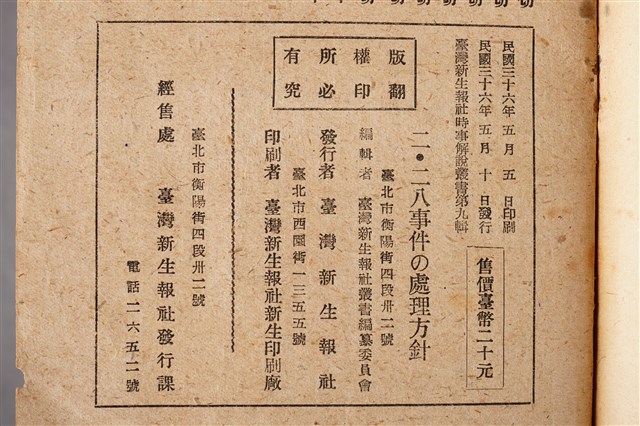 民國三十六年五月五日印刷
民國三十六年五月十日發行
臺灣新生報社時事解說叢書第九輯
售價臺幣二十元
二・二八事件の處理方針
臺北市衡陽街四段卅二號
編輯者 臺灣新生報社叢書編纂委員會
發行者 臺灣新生報社
臺北市西園街一三五五號
印刷者 臺灣新生報社新生印刷廠
版權所有
翻印必究
臺北市衡陽街四段卅二號
經售處 臺灣新生報社發行課
電話二六五二號